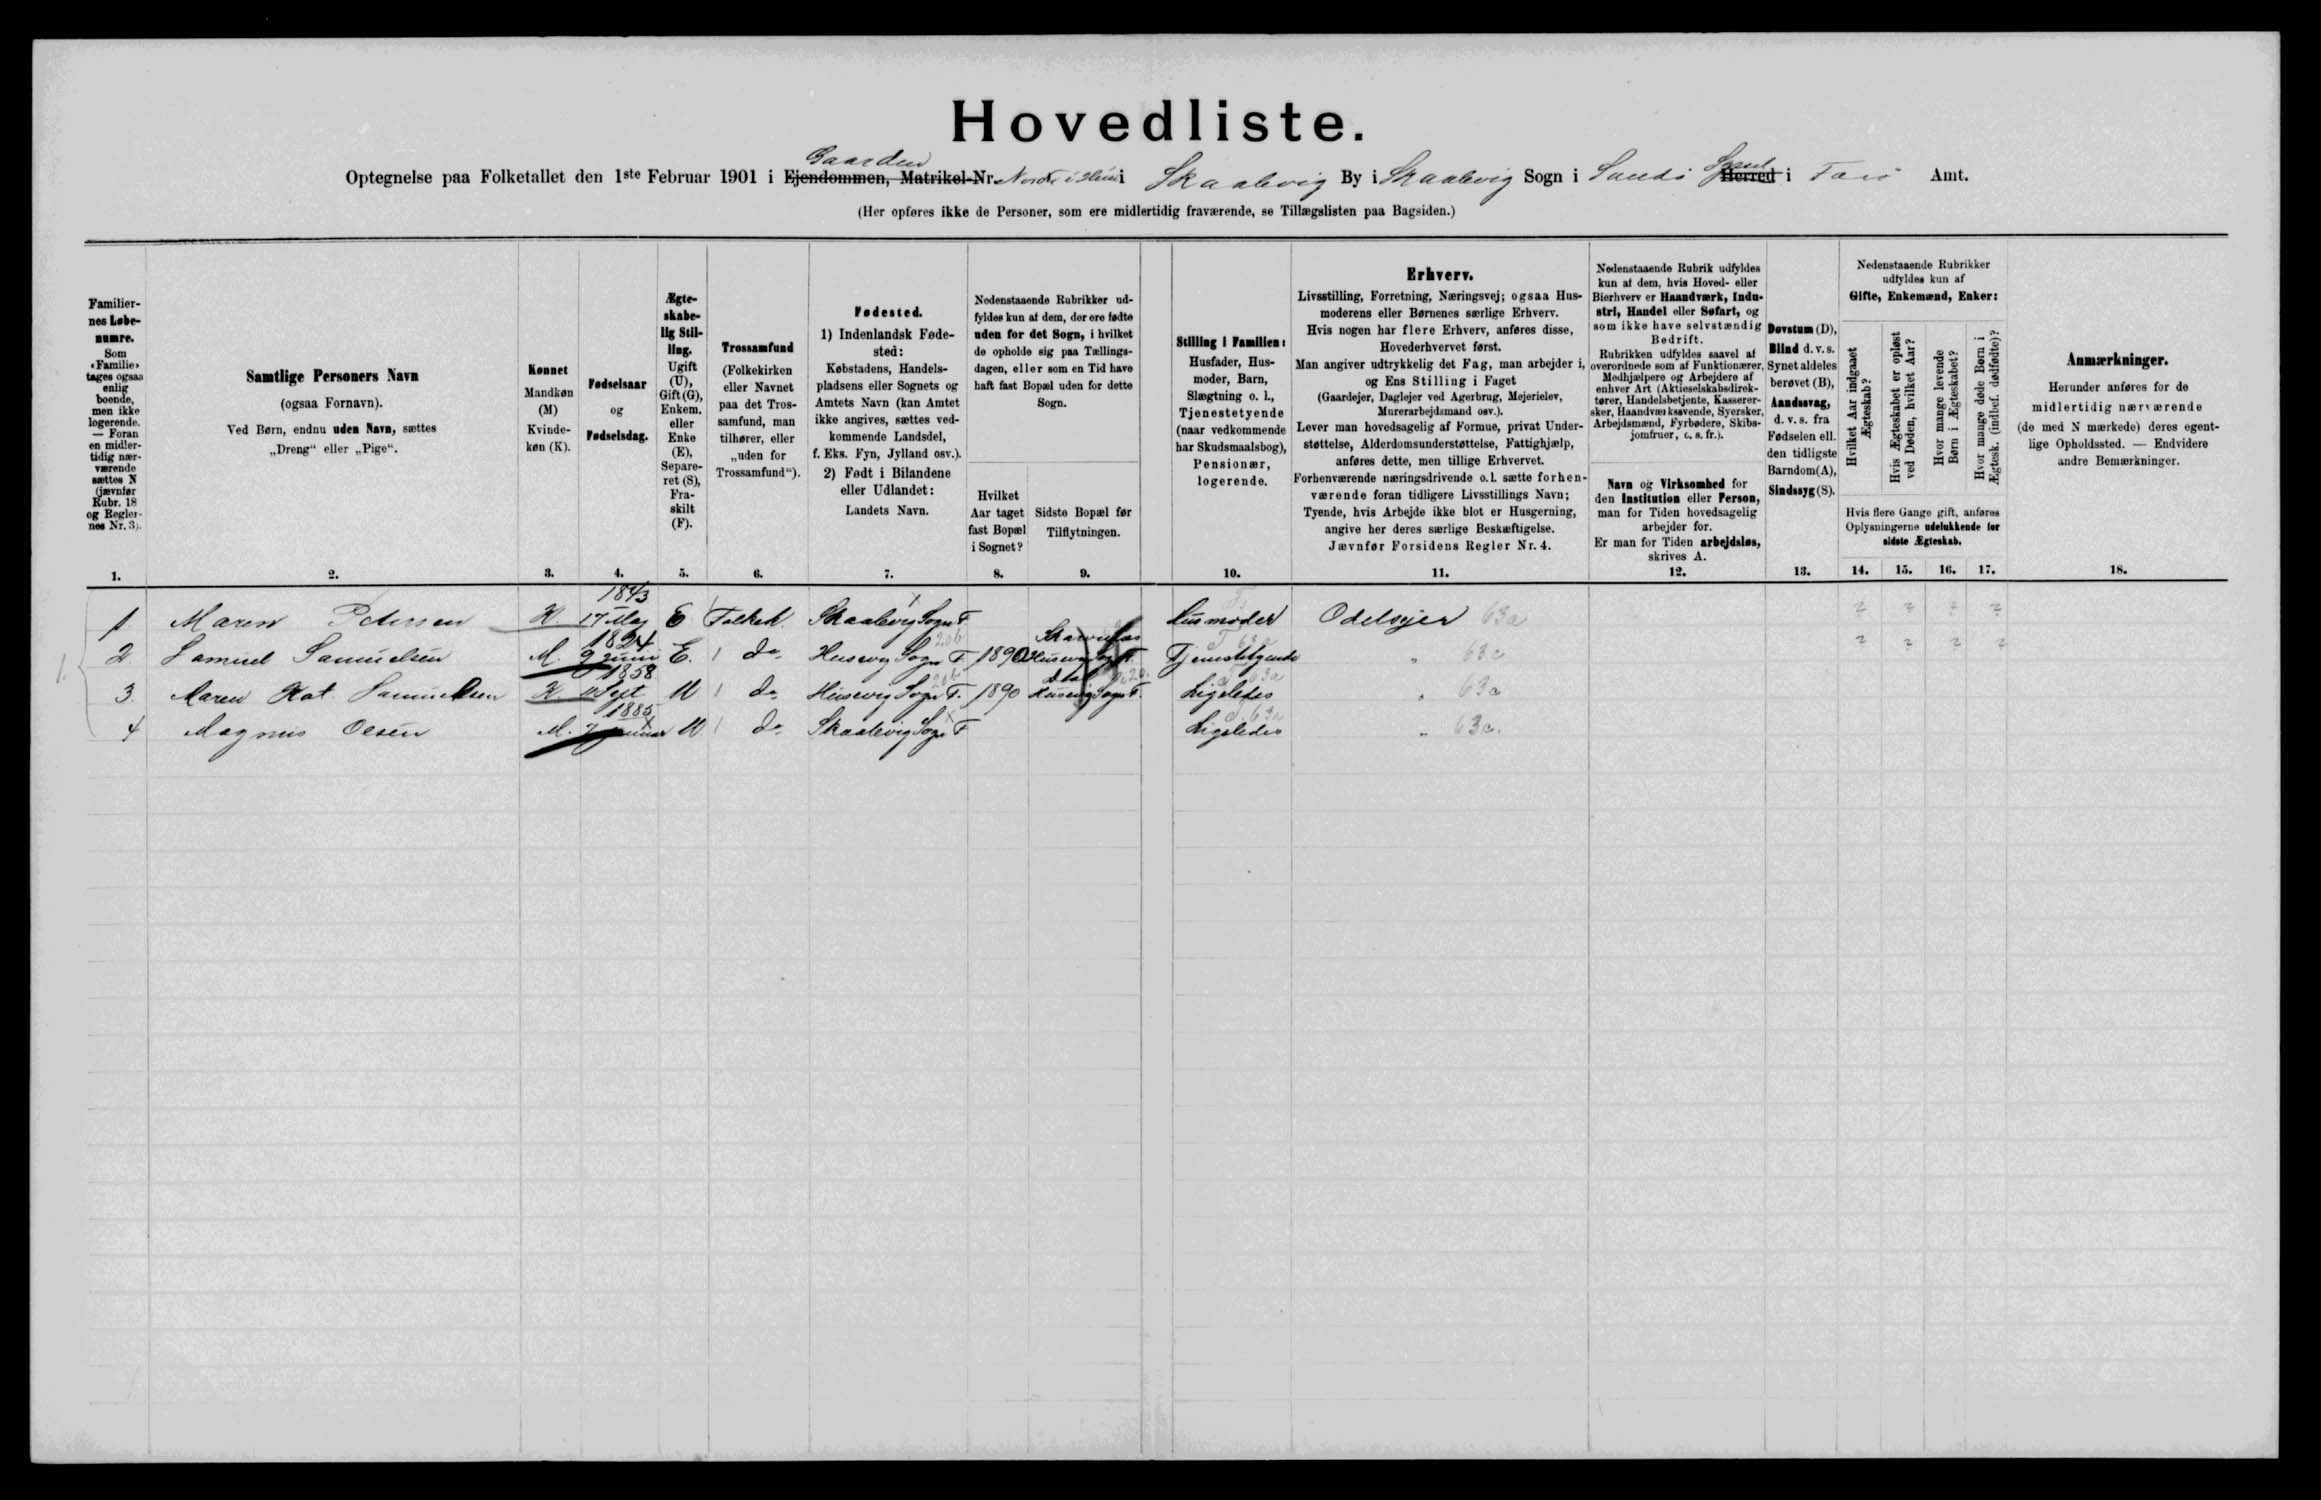 Hovedliste.
Gaarden
Optegnelse paa Folketallet den 1ste Februar 1901 i Ejendommen, Matrikel-Nr. i Skaalevig By i Skaalevig Sogn i Sandø Syssel Herred i Farø Amt.
(Her opføres ikke de Personer, som ere midlertidig fraværende, se Tillægslisten paa Bagsiden.)
Familiernes Løbenumre.
Som «Familie» tages ogsaa enlig boende, men ikke logerende. — Foran en midlertidig nærværende sættes N (jævnfør Rubr. 18 og Reglernes Nr. 3).
1.
Samtlige Personers Navn
(ogsaa Fornavn).
Ved Børn, endnu uden Navn, sættes
„Dreng“ eller „Pige“.
2.
Kønnet
Mandkøn
(M)
Kvinde-
køn (K).
3.
Fødselsaar
og
Fødselsdag.
4.
Ægte-
skabe-
lig Stil-
ling.
Ugift
(U),
Gift (G),
Enkem.
eller
Enke
(E),
Separe-
ret (S),
Fra-
skilt
(F).
5.
Trossamfund
(Folkekirken
eller Navnet
paa det Tros-
samfund, man
tilhører, eller
„uden for
Trossamfund“).
6.
Fødested.
1) Indenlandsk Føde-
sted:
Købstadens, Handels-
pladsens eller Sognets og
Amtets Navn (kan Amtet
ikke angives, sættes ved-
kommende Landsdel,
f. Eks. Fyn, Jylland osv.).
2) Født i Bilandene
eller Udlandet:
Landets Navn.
7.
Nedenstaaende Rubrikker ud-
fyldes kun af dem, der ere fødte
uden for det Sogn, i hvilket
de opholde sig paa Tællings-
dagen, eller som en Tid have
haft fast Bopæl uden for dette
Sogn.
Hvilket
Aar taget
fast Bopæl
i Sognet?
8.
Sidste Bopæl før
Tilflytningen.
9.
Stilling i Familien:
Husfader, Hus-
moder, Barn,
Slægtning o. l.,
Tjenestetyende
(naar vedkommende
har Skudsmaalsbog),
Pensionær,
logerende.
10.
Erhverv.
Livsstilling, Forretning, Næringsvej; ogsaa Hus-
moderens eller Børnenes særlige Erhverv.
Hvis nogen har flere Erhverv, anføres disse,
Hovederhvervet først.
Man angiver udtrykkelig det Fag, man arbejder i,
og Ens Stilling i Faget
(Gaardejer, Daglejer ved Agerbrug, Mejerielev,
Murerarbejdsmand osv.).
Lever man hovedsagelig af Formue, privat Under-
støttelse, Alderdomsunderstøttelse, Fattighjælp,
anføres dette, men tillige Erhvervet.
Forhenværende næringsdrivende o. l. sætte forhen-
værende foran tidligere Livsstillings Navn;
Tyende, hvis Arbejde ikke blot er Husgerning,
angive her deres særlige Beskæftigelse.
Jævnfør Forsidens Regler Nr. 4.
11.
Nedenstaaende Rubrik udfyldes
kun af dem, hvis Hoved- eller
Bierhverv er Haandværk, Indu-
stri, Handel eller Søfart, og
som ikke have selvstændig
Bedrift.
Rubrikken udfyldes saavel af
overordnede som af Funktionærer,
Medhjælpere og Arbejdere af
enhver Art (Aktieselskabsdirek-
tører, Handelsbetjente, Kasserer-
sker, Haandværkssvende, Syersker,
Arbejdsmænd, Fyrbødere, Skibs-
jomfruer, o. s. fr.).
Navn og Virksomhed for
den Institution eller Person,
man for Tiden hovedsagelig
arbejder for.
Er man for Tiden arbejdsløs,
skrives A.
12.
Døvstum (D),
Blind d. v. s.
Synet aldeles
berøvet (B),
Aandssvag,
d. v. s. fra
Fødselen ell.
den tidligste
Barndom (A),
Sindssyg (S).
13.
Nedenstaaende Rubrikker
udfyldes kun af
Gifte, Enkemænd, Enker:
Hvilket Aar indgaaet
Ægteskab?
Hvis Ægteskabet er opløst
ved Døden, hvilket Aar?
Hvor mange levende
Børn i Ægteskabet?
Hvor mange døde Børn i
Ægtesk. (indbef. dødfødte)?
Hvis flere Gange gift, anføres
Oplysningerne udelukkende for
sidste Ægteskab.
14. 15. 16. 17.
Anmærkninger.
Herunder anføres for de
midlertidig nærværende
(de med N mærkede) deres egent-
lige Opholdssted. — Endvidere
andre Bemærkninger.
18.
1 Maren Petersen K 1843 17 Maj E Folkek. Skaalevig Sogn F Husmoder Odelsejer 63a
2 Samuel Samuelsen M. 1824 9 Juni E. do Husevig Sogn F. 1890 Husevig Sogn F. Tjenestetyende " 63a
3. Maren Kat. Samuelsen K 1858 Sept U do Husevig Sogn F. 1890 Husevig Sogn F. Ligeledes " 63a
4 Magnus Olsen M. 1885 Januar U do Skaalevig Sogn F Ligeledes " 63a.